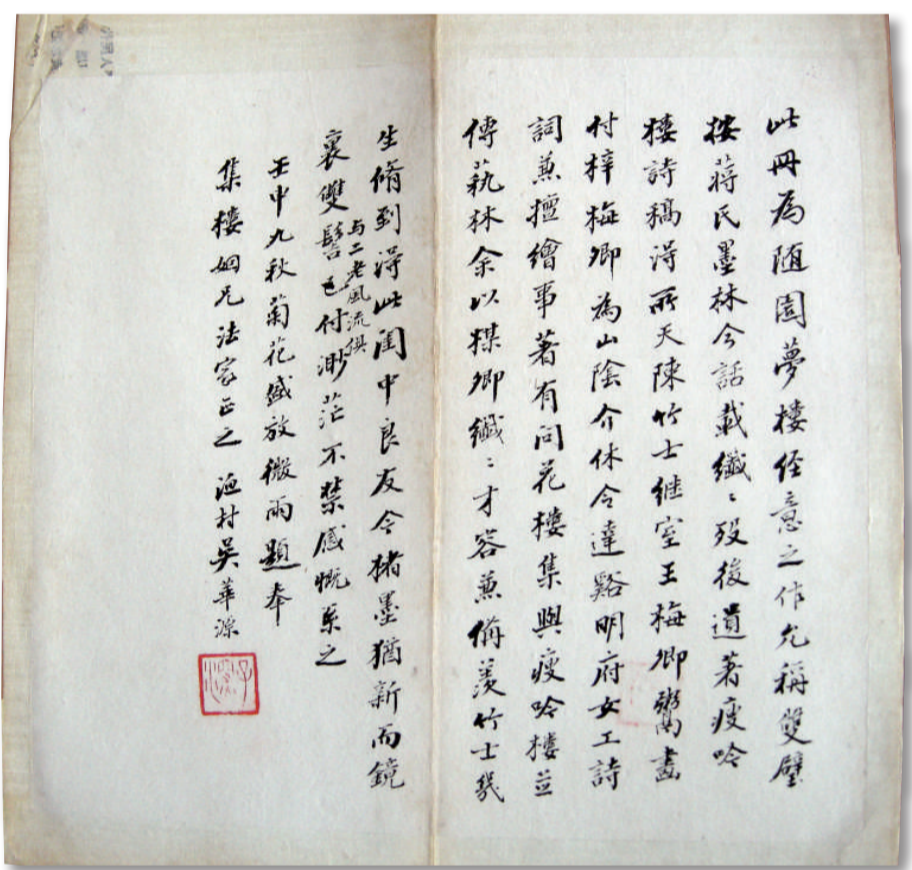 此冊為随園夢樓經意之作允稱雙璧
按蔣氏墨林今話載纖〻歿後遺著瘦吟
樓詩稿淂所天陳竹士継室王梅卿鬻畫
付梓梅卿為山陰介休令達谿明府女工詩
詞兼擅繪事著有問花樓集與瘦吟樓並
傳蓺林余以楳卿纖〻才容兼備羨竹士幾
生脩到淂此閨中良友今猪墨猶新而鏡
裏雙髻與二老風流俱已付渺茫不禁感慨系之
壬申九秋菊花盛放微雨題奉
集樓姻兄法家正之 漁村吳華源